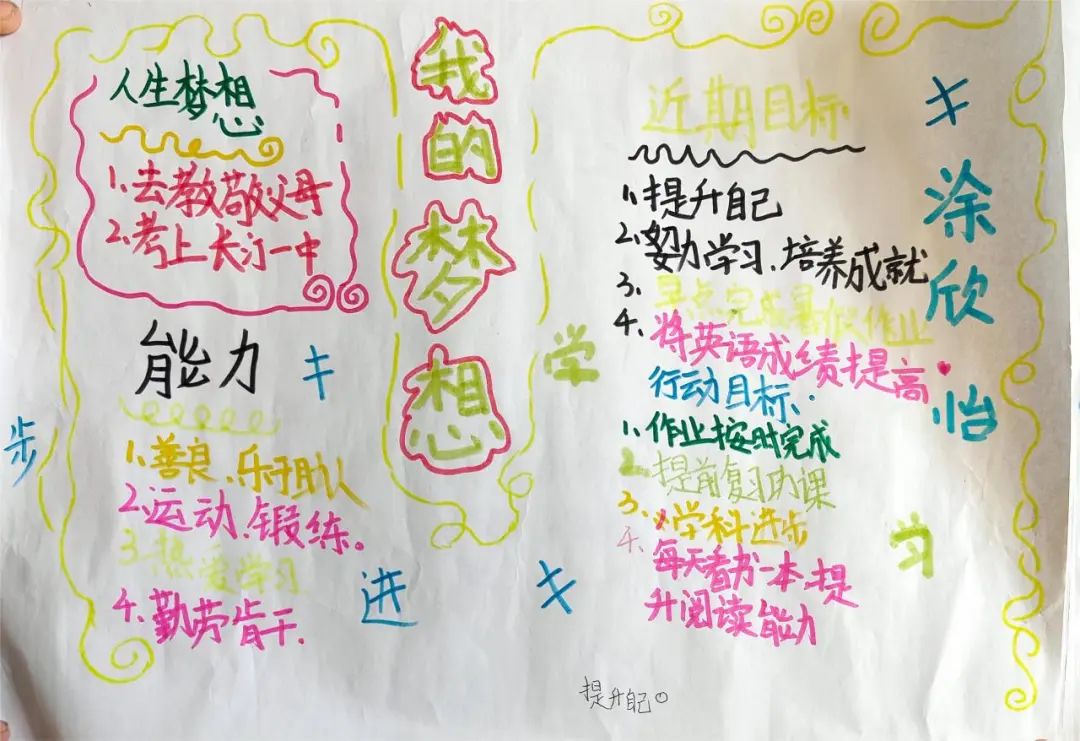 我的梦想
人生梦想
1、去教敬父母
2、考上长汀一中
能力
1、善良、乐于助人
2、运动、锻练。
3、热爱学习
4、勤劳肯干.
步
进
学
习
近期目标
1、提升自己
2、努力学习、培养成就
3、早点完成暑假作业
4、将英语成绩提高
行动目标、
1、作业按时完成
2、提前复习功课
3、学科进步
4、每天看书一本、提
升阅读能力
涂欣怡
提升自己。